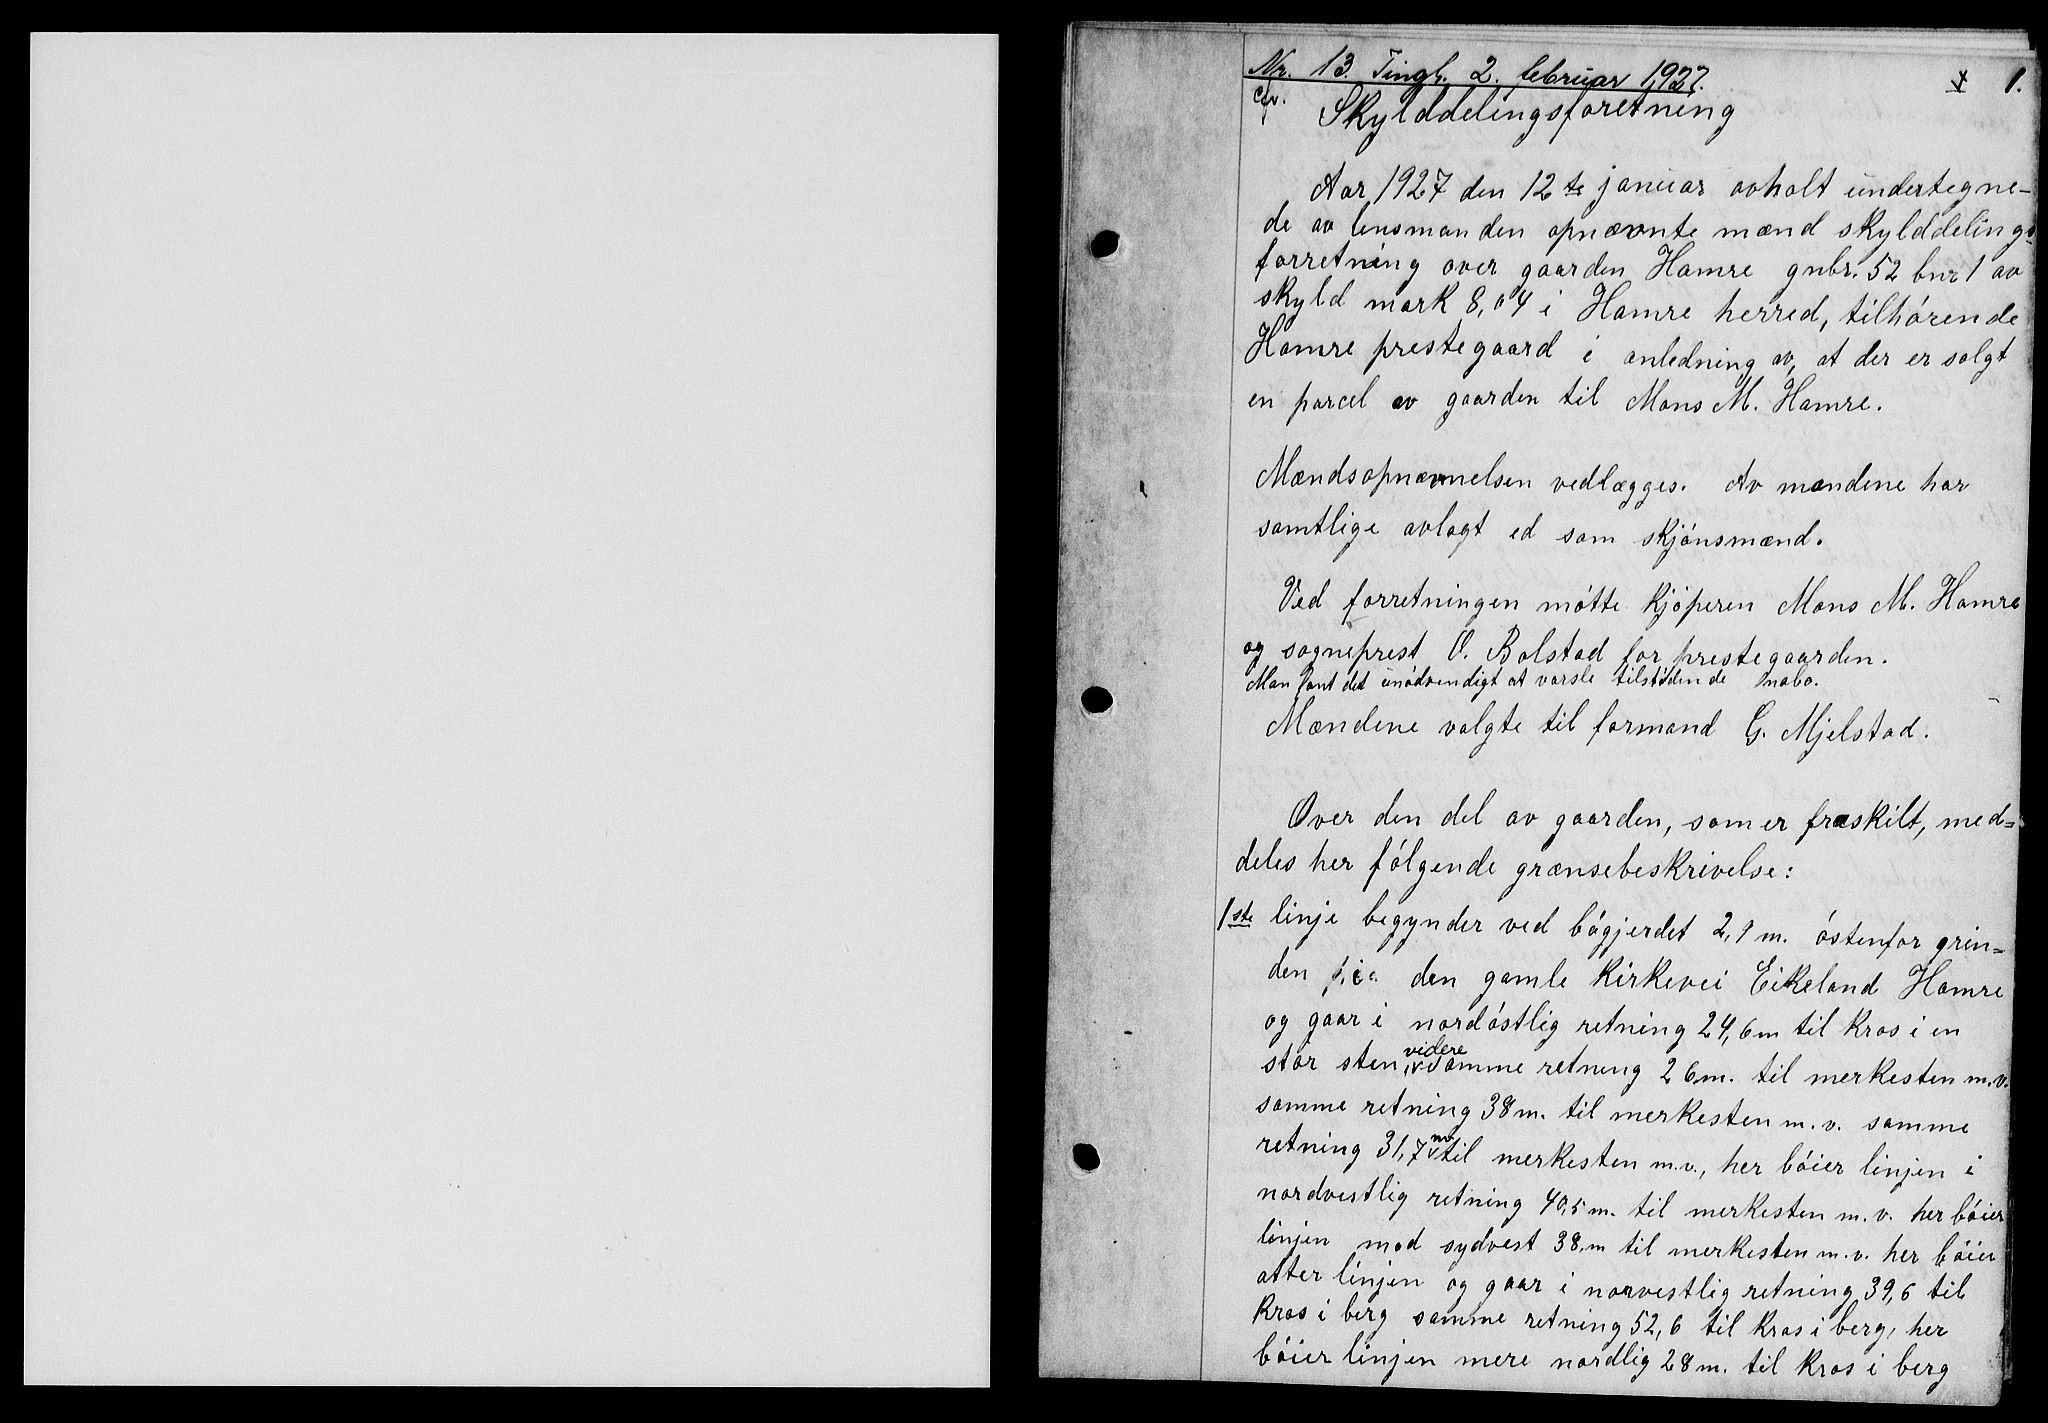 Nr. 13. Tingl. 2. februar 1927. 1.
Skylddelingsforetning
Aar 1927 den 12te januar avholt undertegne-
de av lensmanden opnævnte mænd skylddelings-
forretning over gaarden Hamre gnbr. 52 bnr 1 av
skyld mark 8,04 i Hamre herred, tilhörende
Hamre prestegaard i anledning av, at der er solgt
en parcel av gaarden til Mons M. Hamre.
Mændsopnævnelsen vedlægges. Av mændene har
samtlige avlagt ed som skjönsmænd.
Ved forretningen mötte kjöperen Mons M. Hamre
og sogneprest O. Bolstad for prestegaarden.
Man fant det unödvendigt at varsle tilstödende nabo.
Mændene valgte til formand G. Mjelstad.
Over den del av gaarden, som er fraskilt, med=
deles her fölgende grænsebeskrivelse:
1ste linje begynder ved bögjerdet 2,1 m. östenfor grin=
den paa den gamle kirkevei Eikeland Hamre
og gaar i nordöstlig retning 24,6 m til kros i en
stor sten, videre samme retning 26 m. til merkesten m.v.
samme retning 38 m. til merkesten m.v. samme
retning 31,7 m. til merkesten m.v., her böier linjen i
nordvestlig retning 40,5 m. til merkesten m.v. her böier
linjen mod sydvest 38 m til merkesten m.v. her böier
atter linjen og gaar i norvestlig retning 39,6 til
kros i berg samme retning 52,6 til kros i berg, her
böier linjen mere nordlig 28 m. til kros i berg